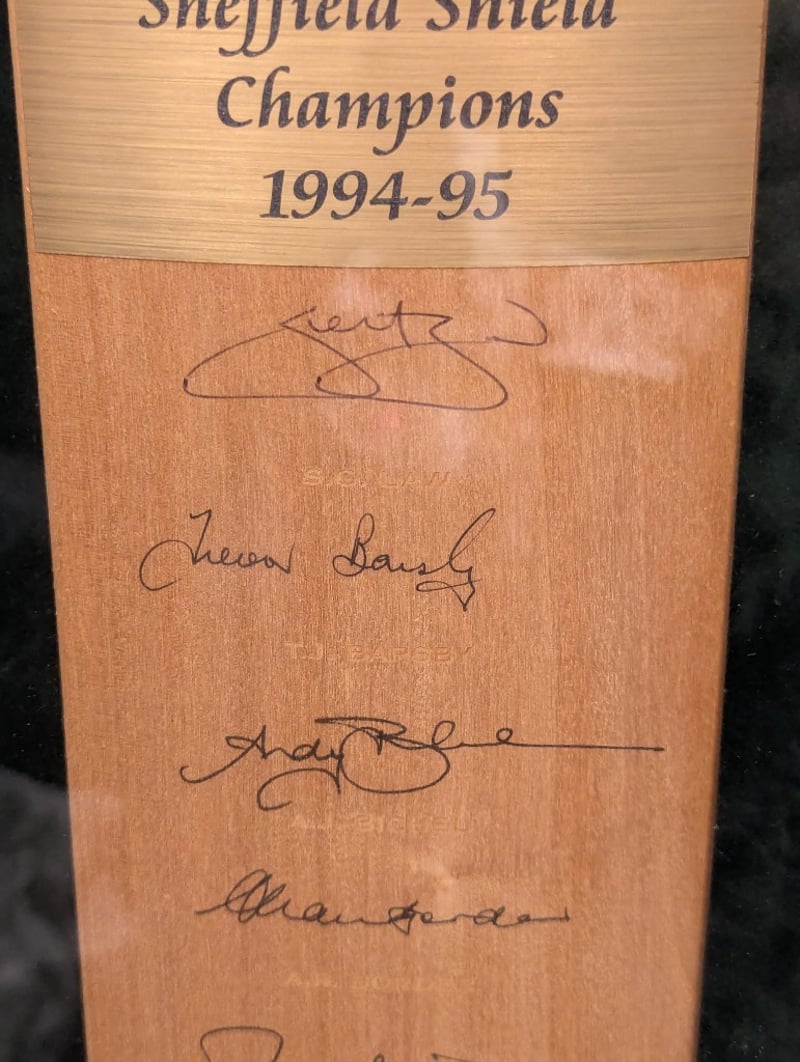 Sheffield Shield
Champions
1994-95
S.G. LAW
Trevor Barsby
T.J. BARSBY
Andy
A.J.
Allan Border
A.R.